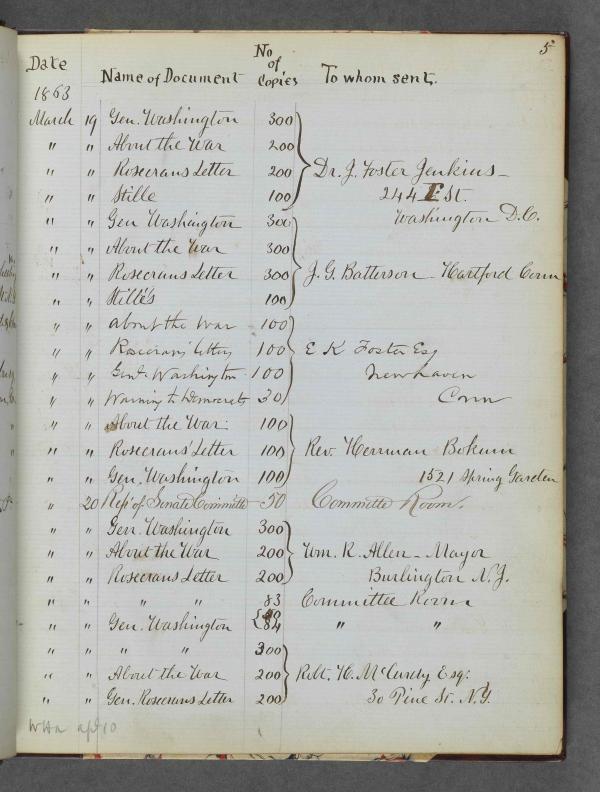 5
Date Name of Document No of Copies To whom sent.
1863
March 19 Gen. Washington 300
" " About the War 200
" " Rosecrans Letter 200 Dr. J. Foster Jenkins—
" " Stille 100 244 F St.
" " Gen Washington 300 Washington D.C.
" " About the War 300
" " Rosecrans Letter 300 J. G. Batterson — Hartford Conn
" " Stillé's 100
" " About the War 100
" " Rosecrans' letters 100 E K Foster Esq
" " Genl. Washington 100 New haven
" " Warning to Democrats 30 Conn
" " About the War. 100
" " Rosecrans' Letter 100 Rev. Herrman Bokum
" " Gen. Washington 100 1521 Spring Garden
" 20 Rep' of Senate Committe 50 Committe Room.
" " Gen. Washington 300
" " About the War 200 Wm. R. Allen — Mayor
" " Rosecrans Letter 200 Burlington N. J.
" " " " 83 Committee Room
" " Gen. Washington 84 " "
" " " " 300
" " About the War 200 Robt. H. McCurdy Esq.
" " Gen. Rosecrans Letter 200 30 Pine St. N.Y.